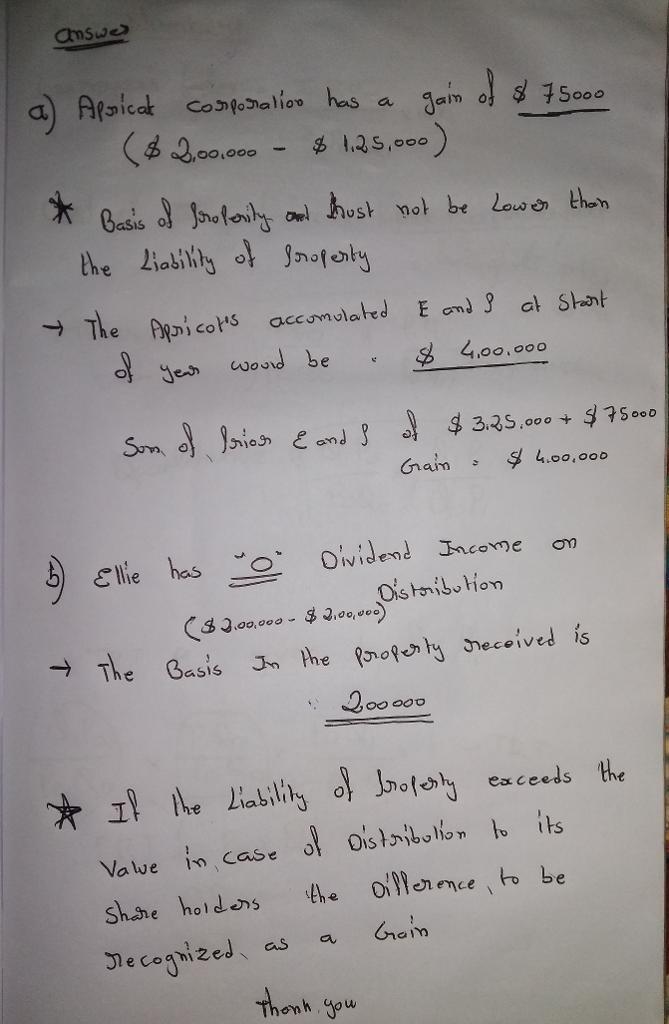 Answer
a) Apricot corporation has a gain of $ 75000
($ 2,00,000 - $ 1,25,000)
* Basis of Property must not be Lower than
the Liability of Property
→ The Apricot's accomulated E and P at Start
of year would be : $ 4,00,000
Sum of Prior E and P of $ 3,25,000 + $ 75000
Gain = $ 4,00,000
b) Ellie has "0" Dividend Income on
Distribution
($ 2,00,000 - $ 2,00,000)
→ The Basis In the property received is
: 200000
* If the Liability of Property exceeds the
Value in case of Distribution to its
Share holders the Difference, to be
recognized as a Gain
Thank you